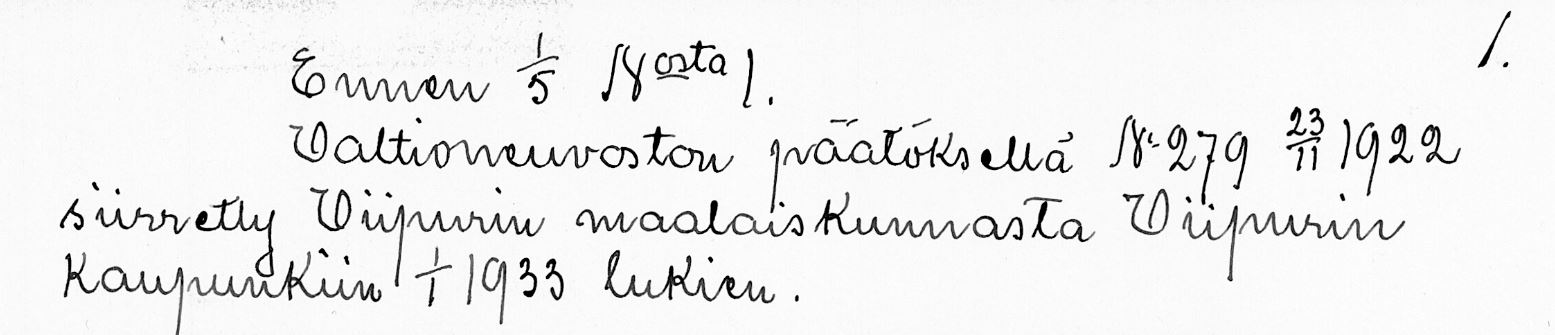 1.
Ennen 1/5 N:osta 1.
Valtioneuvoston päätöksellä N:o 279 23/11 1922
siirretty Viipurin maalaiskunnasta Viipurin
kaupunkiin 1/1 1933 lukien.